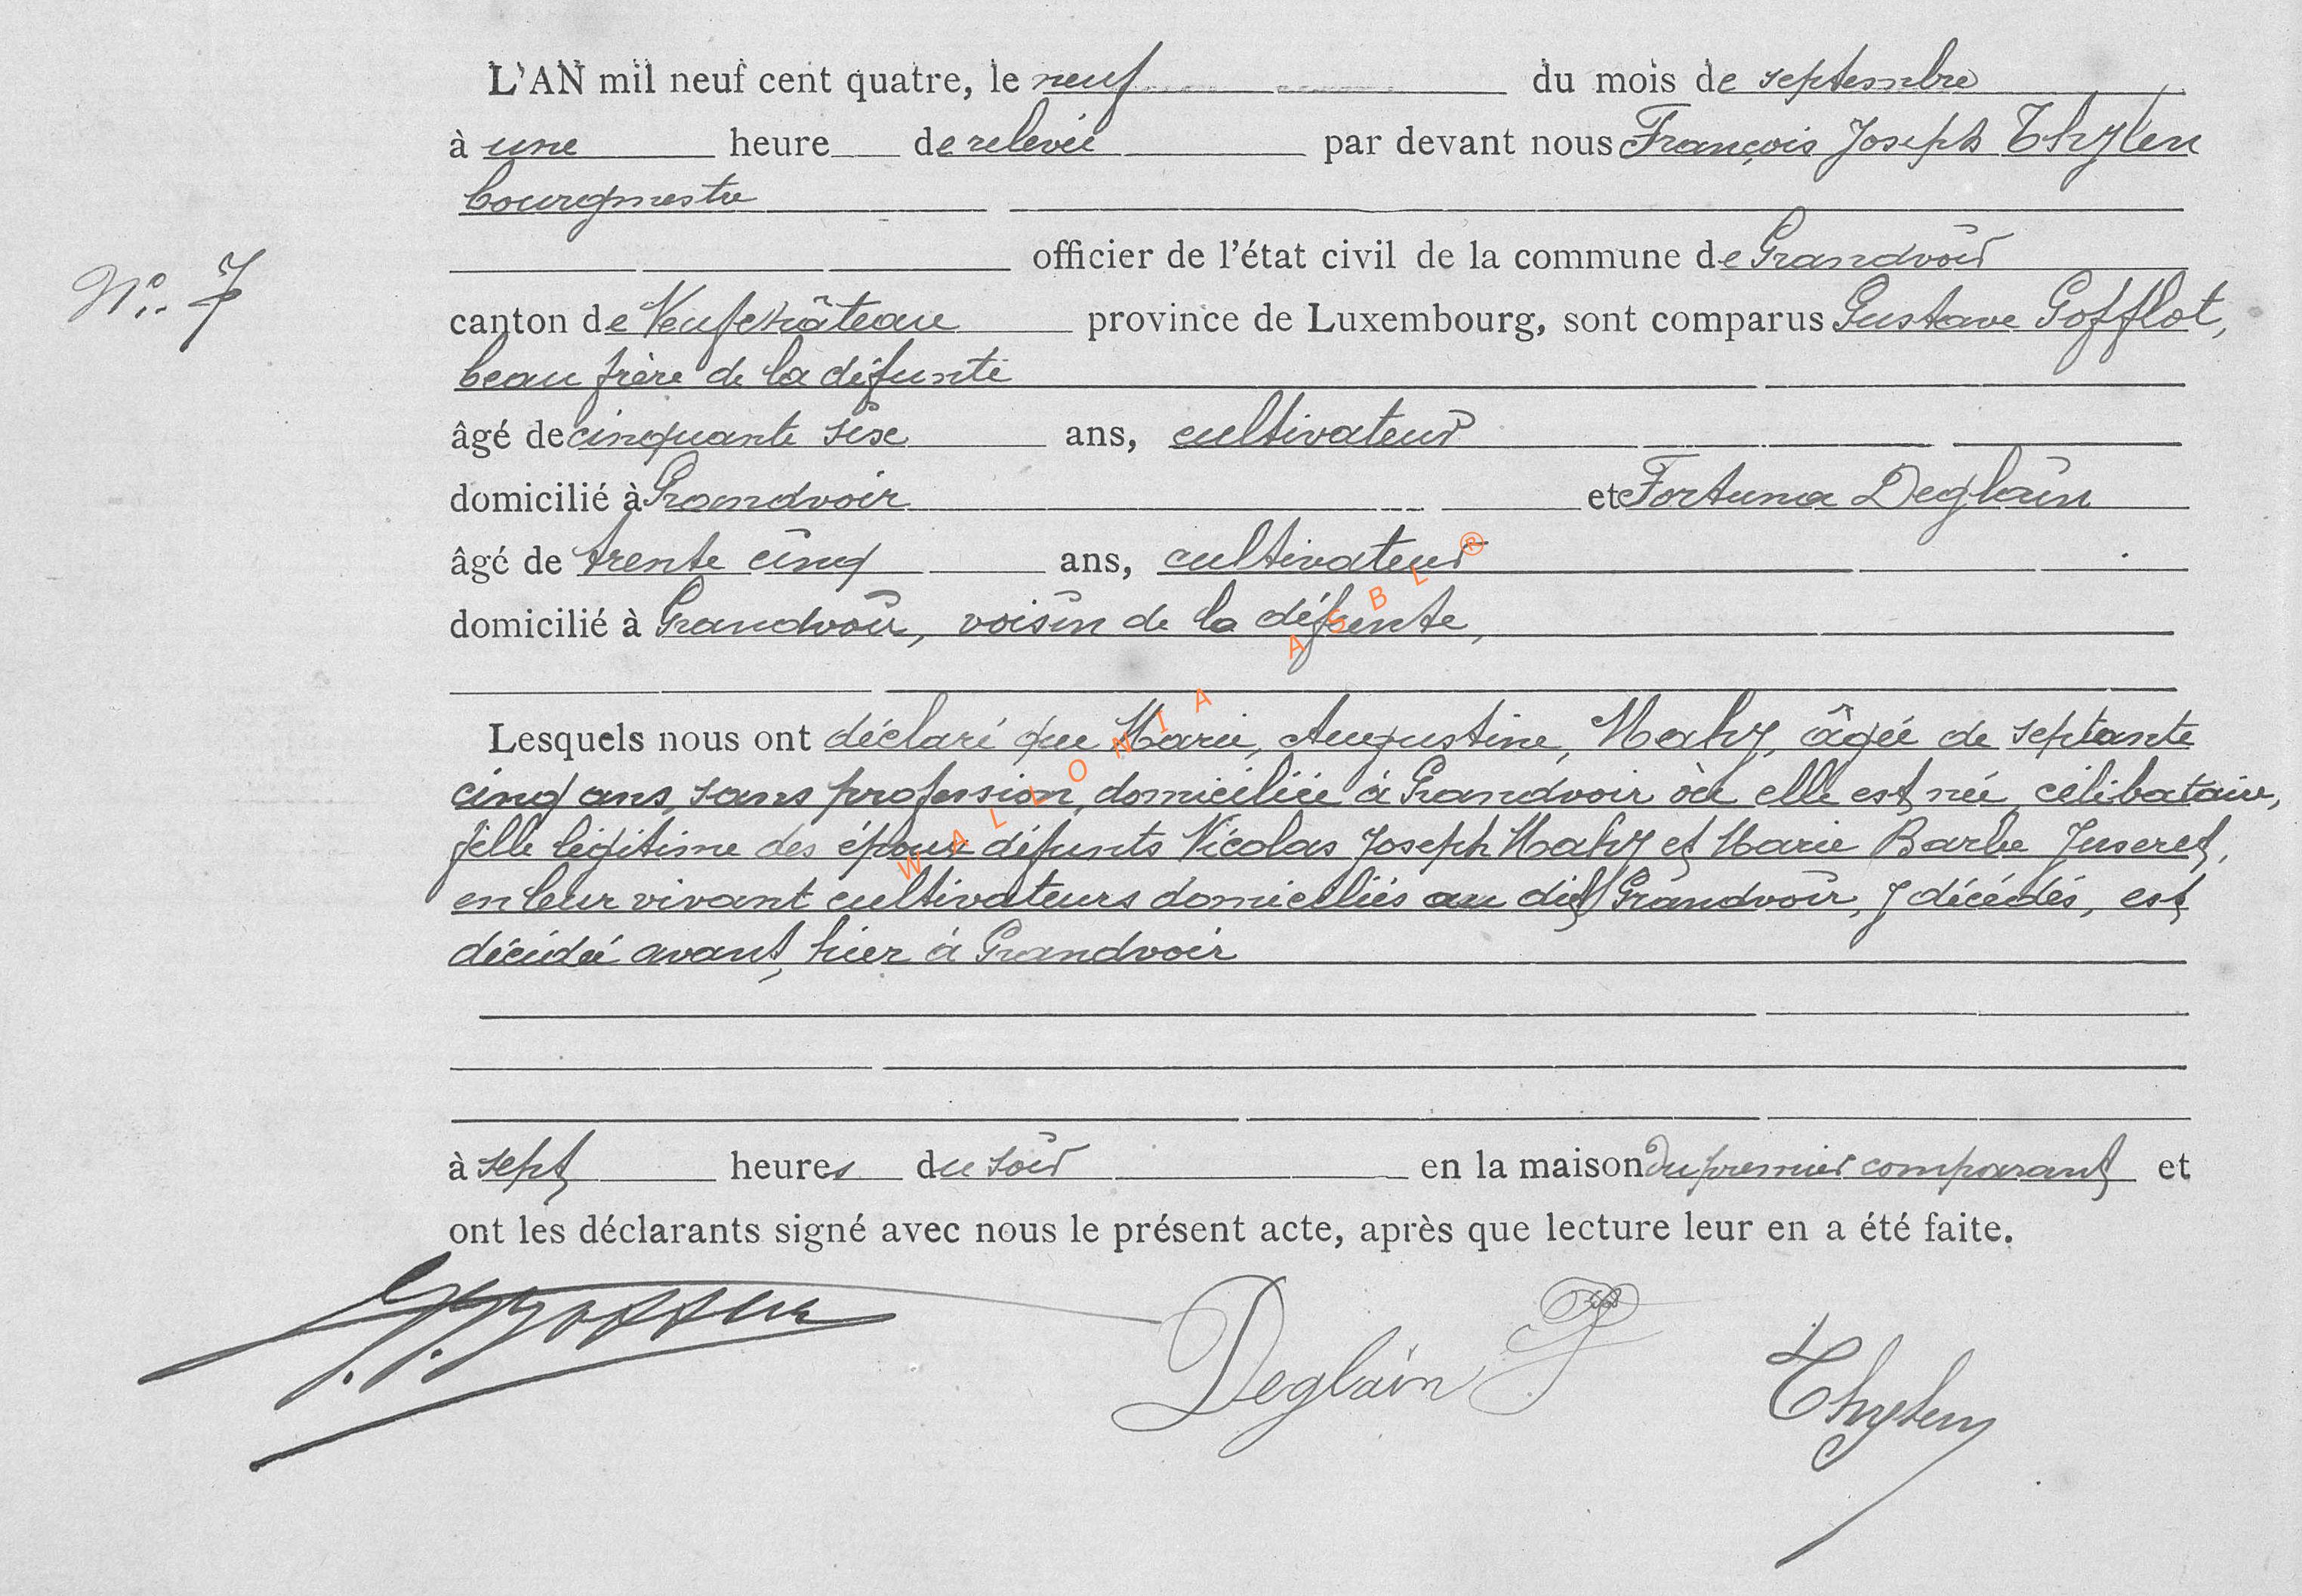 L'AN mil neuf cent quatre, le neuf du mois de septembre
à une heure de relevée par devant nous François Joseph Thylen
bourgmestre
officier de l'état civil de la commune de Grandvoir
N°. 7
canton de Neufchâteau province de Luxembourg, sont comparus Gustave Gofflot,
beau frère de la défunte
âgé de cinquante six ans, cultivateur
domicilié à Grandvoir et Fortuna Deglain
âgé de trente cinq ans, cultivateur
domicilié à Grandvoir, voisin de la défunte,
Lesquels nous ont déclaré que Marie, Augustine, Mahy, âgée de septante
cinq ans, sans profession, domiciliée à Grandvoir où elle est née, célibataire,
fille légitime des époux défunts Nicolas Joseph Mahy et Marie Barbe Juseret,
en leur vivant cultivateurs domiciliés au dit Grandvoir, y décédés, est
décédée avant hier à Grandvoir
à sept heures du soir en la maison du premier comparant et
ont les déclarants signé avec nous le présent acte, après que lecture leur en a été faite.
Deglain F Thylen
WALLONIA ASBL®